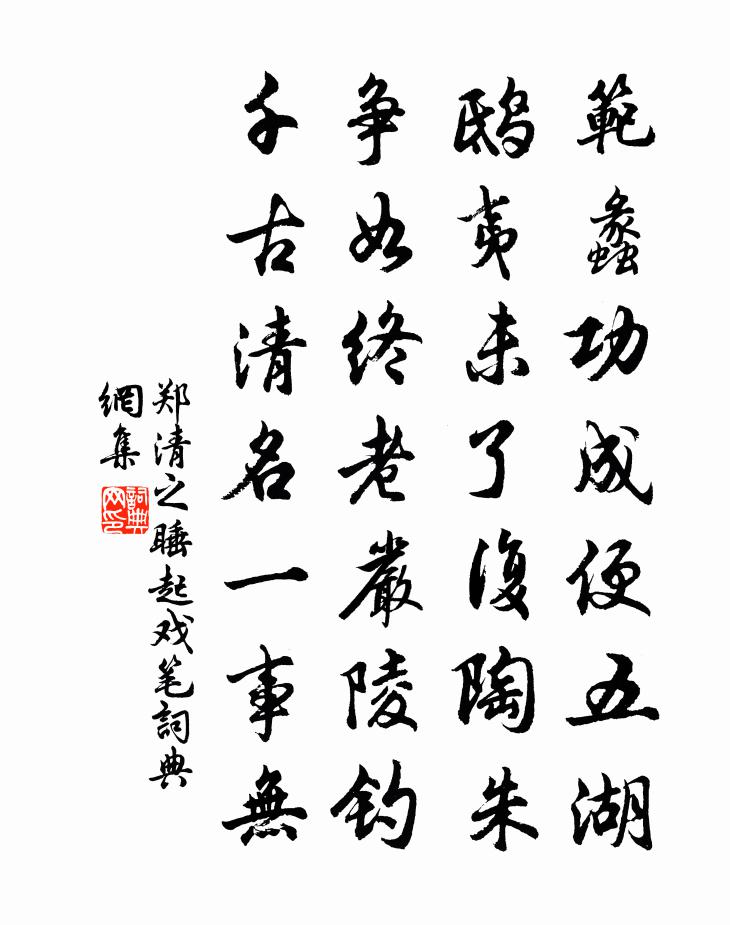 範蠡功成便五湖
鴟夷未了復陶朱
争如終老嚴陵釣
千古清名一事無
郑清之睡起戏笔詞典
網集
詞典
网印